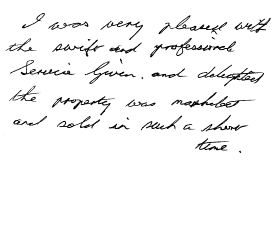 I was very pleased with
the swift and professional
Service Given. and delighted
the property was marketed
and sold in such a short
time.